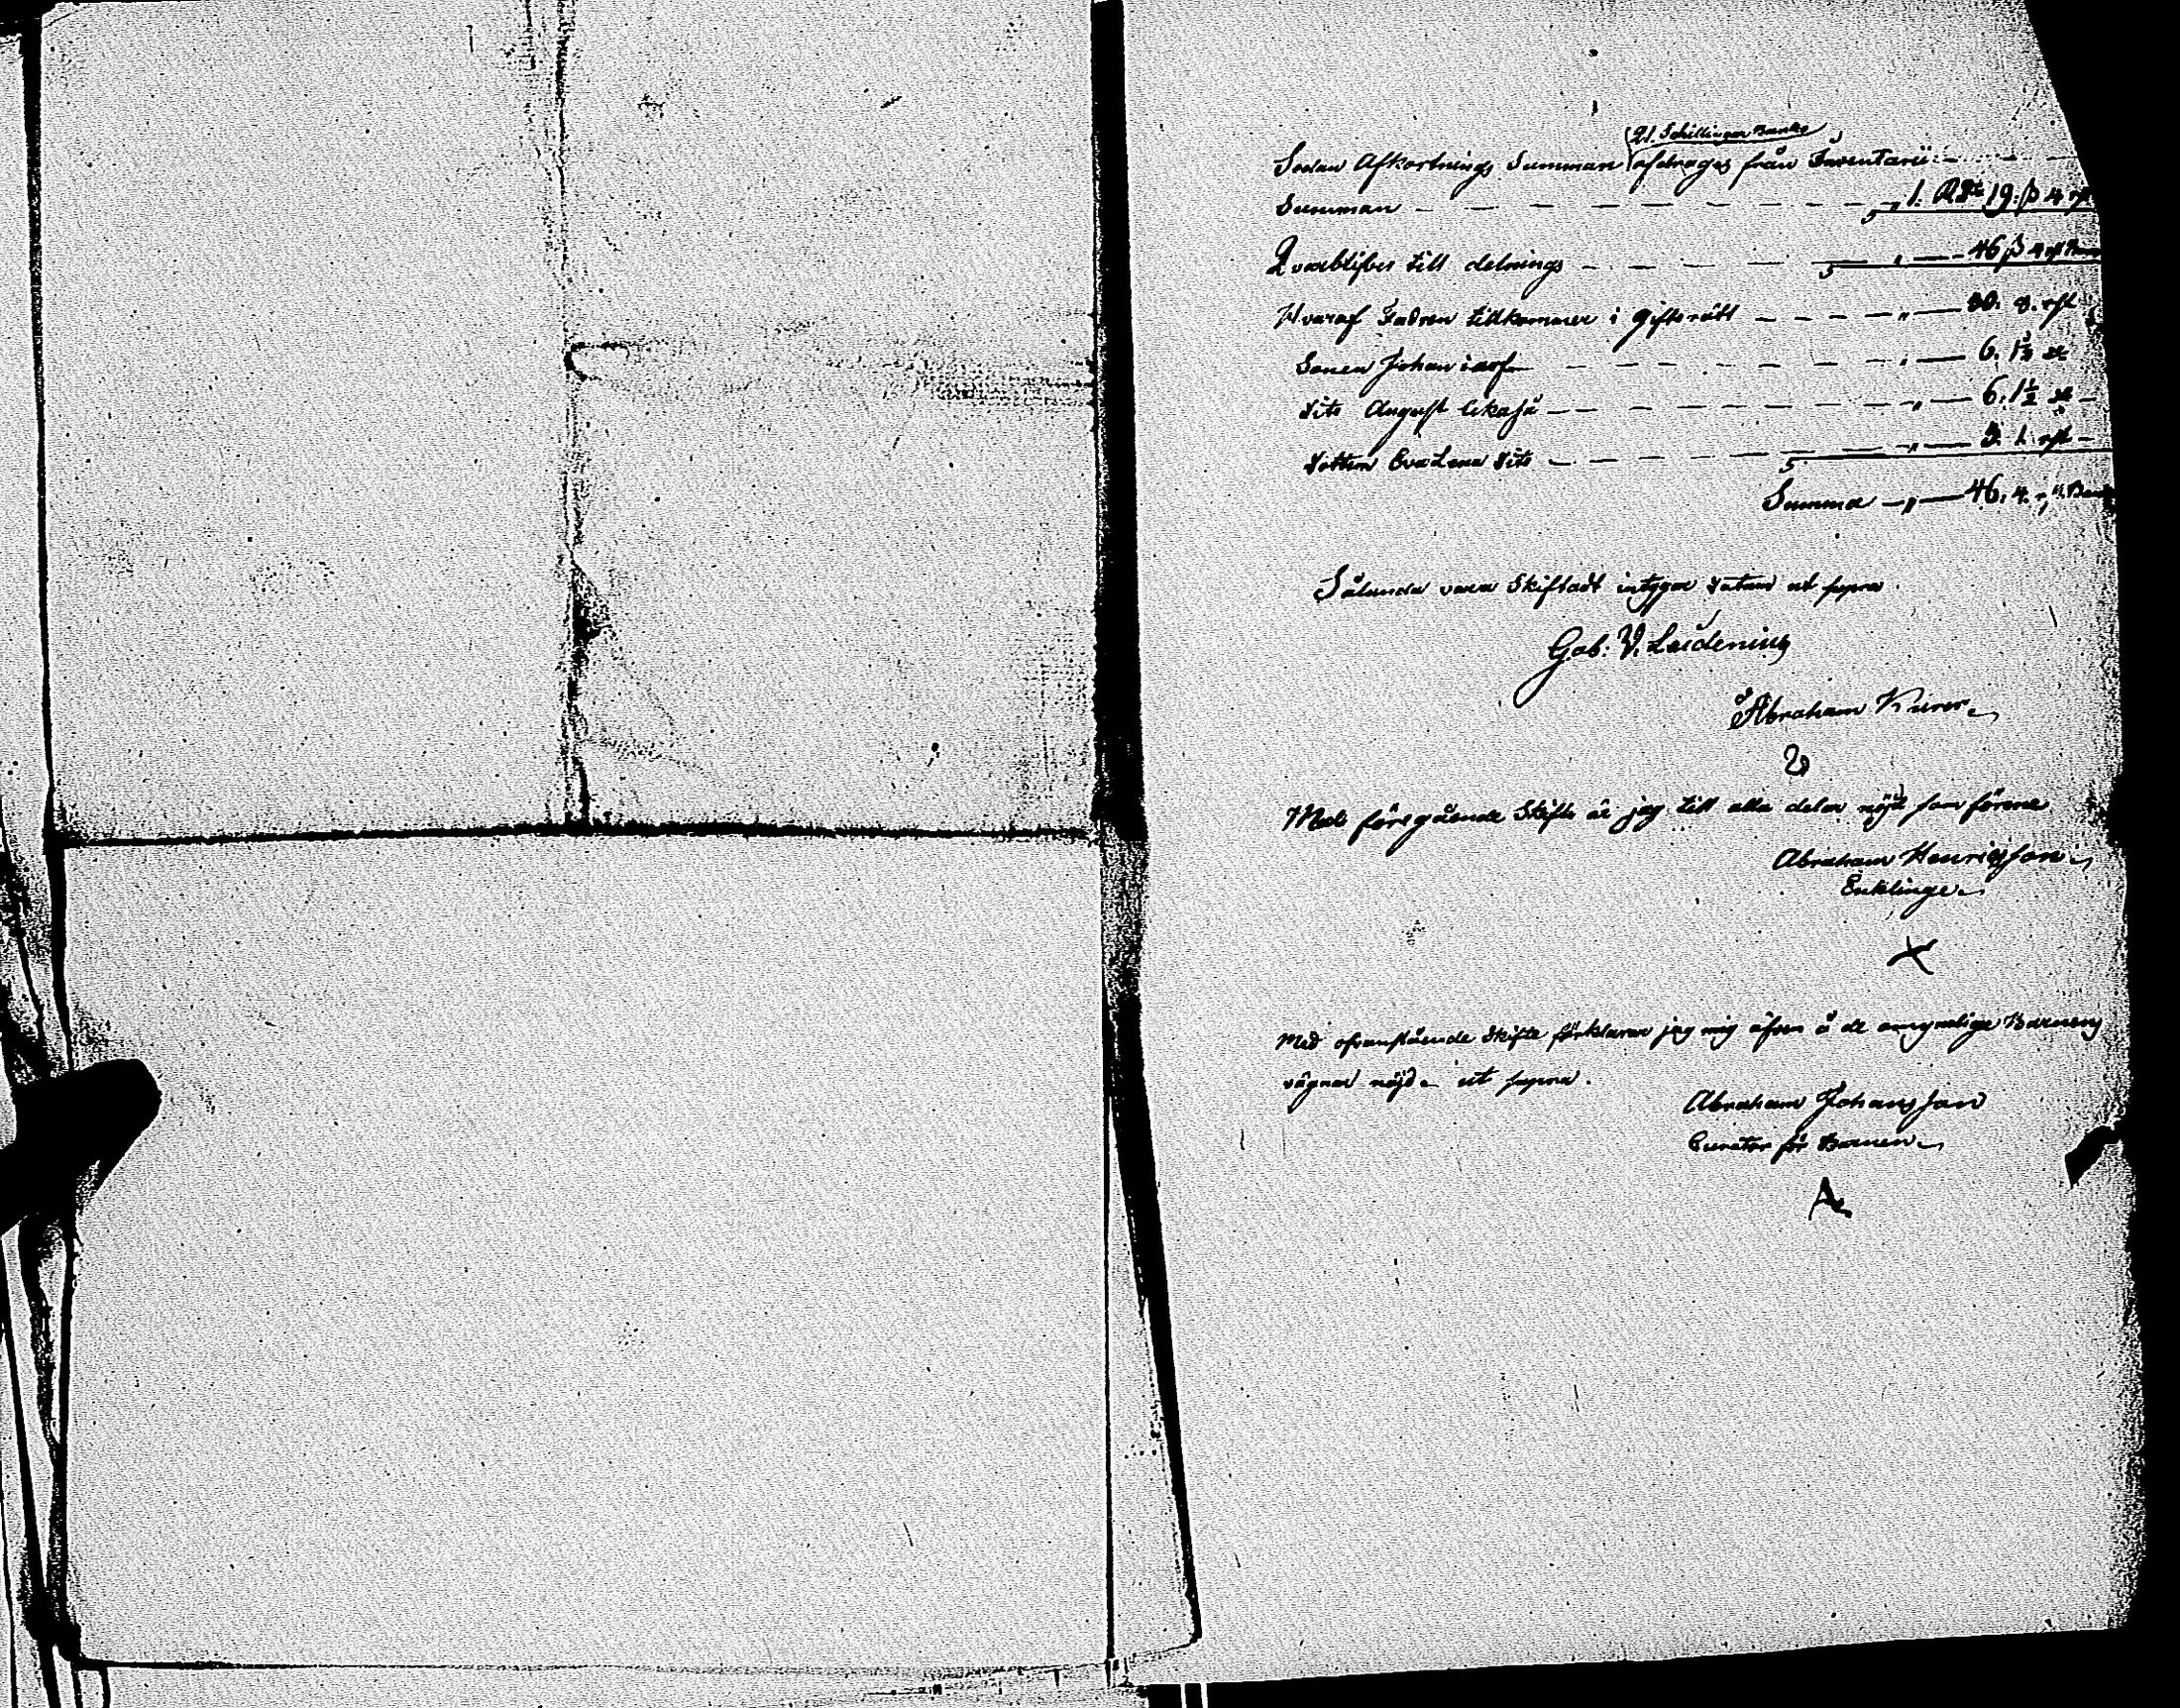 21. Schillingar Banko
Sedan Afkortnings Summan afdrages från Inventarii
Summan — — — — 1. Rd 19. ß 4 rst
Qvarblifver till delnings — — — 46 ß 4 rst
Hvaraf Fadren tillkommer i giftorätt — — — — 30. 8. rst
Sonen Johan i arf — — — — 6. 1½
dito August lika så — — — — 6. 1½
dottren Eva Lena dito — — — — 3. 1. rst
Summa — 46. 4.
Sålunda vara Skiftadt intygar datum ut supra
Gab: V. Leidenius
Abraham
Med föregående Skifte är jag till alla delar nöjd som förene
Abraham Henricsson
Enklinge
Med ofvanstående Skifte förklarar jag mig äfven å de omyndige Barnens
vägnar nöjd ut supra.
Abraham Johansson
Curator för Barnen
A